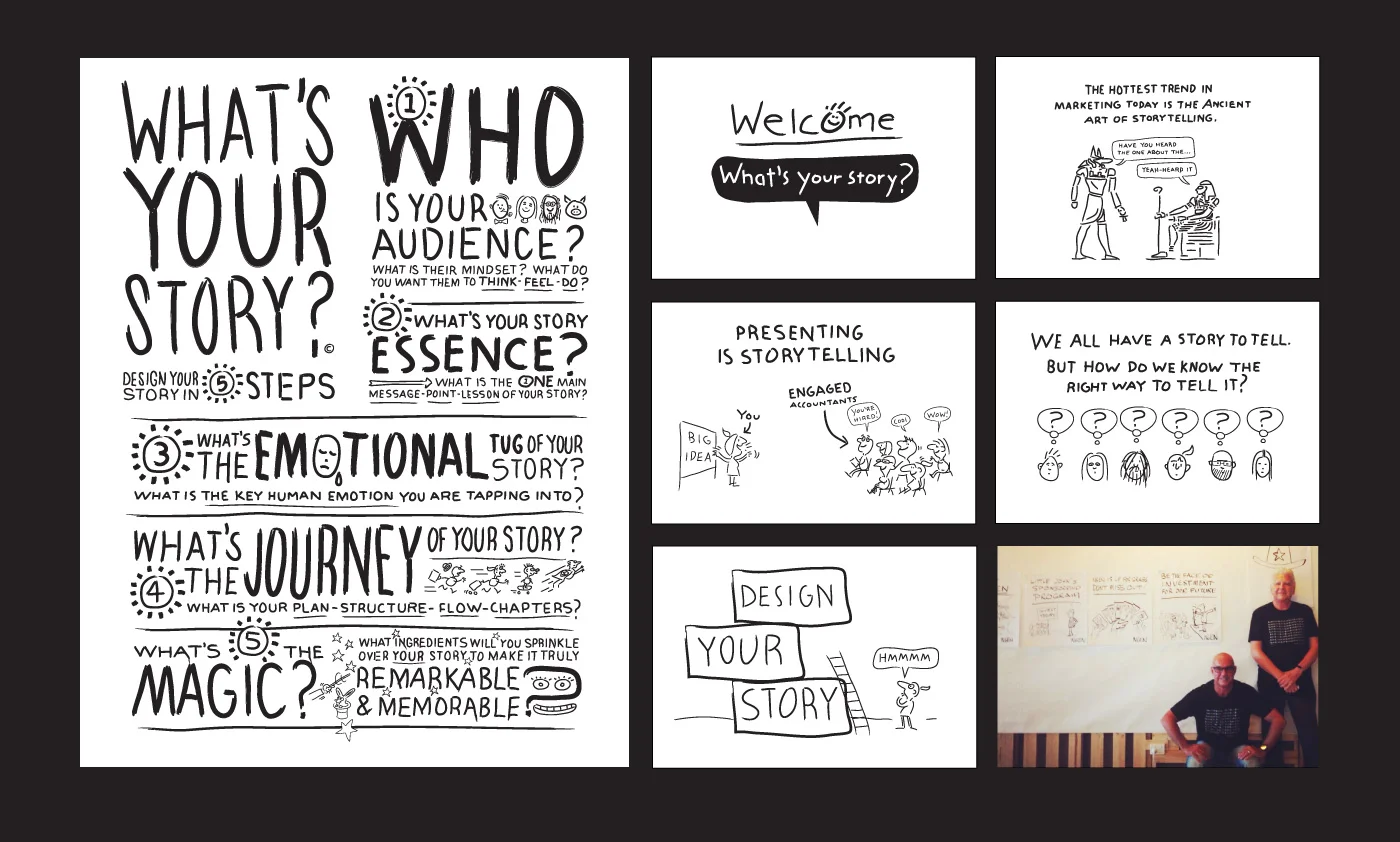 WHAT'S
YOUR
STORY?
©
DESIGN YOUR
STORY IN 5 STEPS
1
WHO
IS YOUR
AUDIENCE?
WHAT IS THEIR MINDSET? WHAT DO
YOU WANT THEM TO THINK-FEEL-DO?
2 WHAT'S YOUR STORY
ESSENCE?
WHAT IS THE ONE MAIN
MESSAGE-POINT-LESSON OF YOUR STORY?
3 WHAT'S
THE EMOTIONAL TUG OF YOUR
STORY?
WHAT IS THE KEY HUMAN EMOTION YOU ARE TAPPING INTO?
WHAT'S
4 THE JOURNEY OF YOUR STORY?
WHAT IS YOUR PLAN-STRUCTURE-FLOW-CHAPTERS?
WHAT'S 5 THE
MAGIC?
WHAT INGREDIENTS WILL YOU SPRINKLE
OVER YOUR STORY TO MAKE IT TRULY
REMARKABLE
& MEMORABLE?
Welcome
What's your story?
THE HOTTEST TREND IN
MARKETING TODAY IS THE ANCIENT
ART OF STORYTELLING.
HAVE YOU HEARD
THE ONE ABOUT THE...
YEAH-HEARD IT
PRESENTING
IS STORYTELLING
ENGAGED
ACCOUNTANTS
You
BIG
IDEA
YOU'RE
HIRED!
COOL
WOW!
WE ALL HAVE A STORY TO TELL.
BUT HOW DO WE KNOW THE
RIGHT WAY TO TELL IT?
? ? ? ? ? ?
DESIGN
YOUR
STORY
HMMMM
PROGRAM
BE THE FACE OF
INVESTMENT
FOR OUR FUTURE